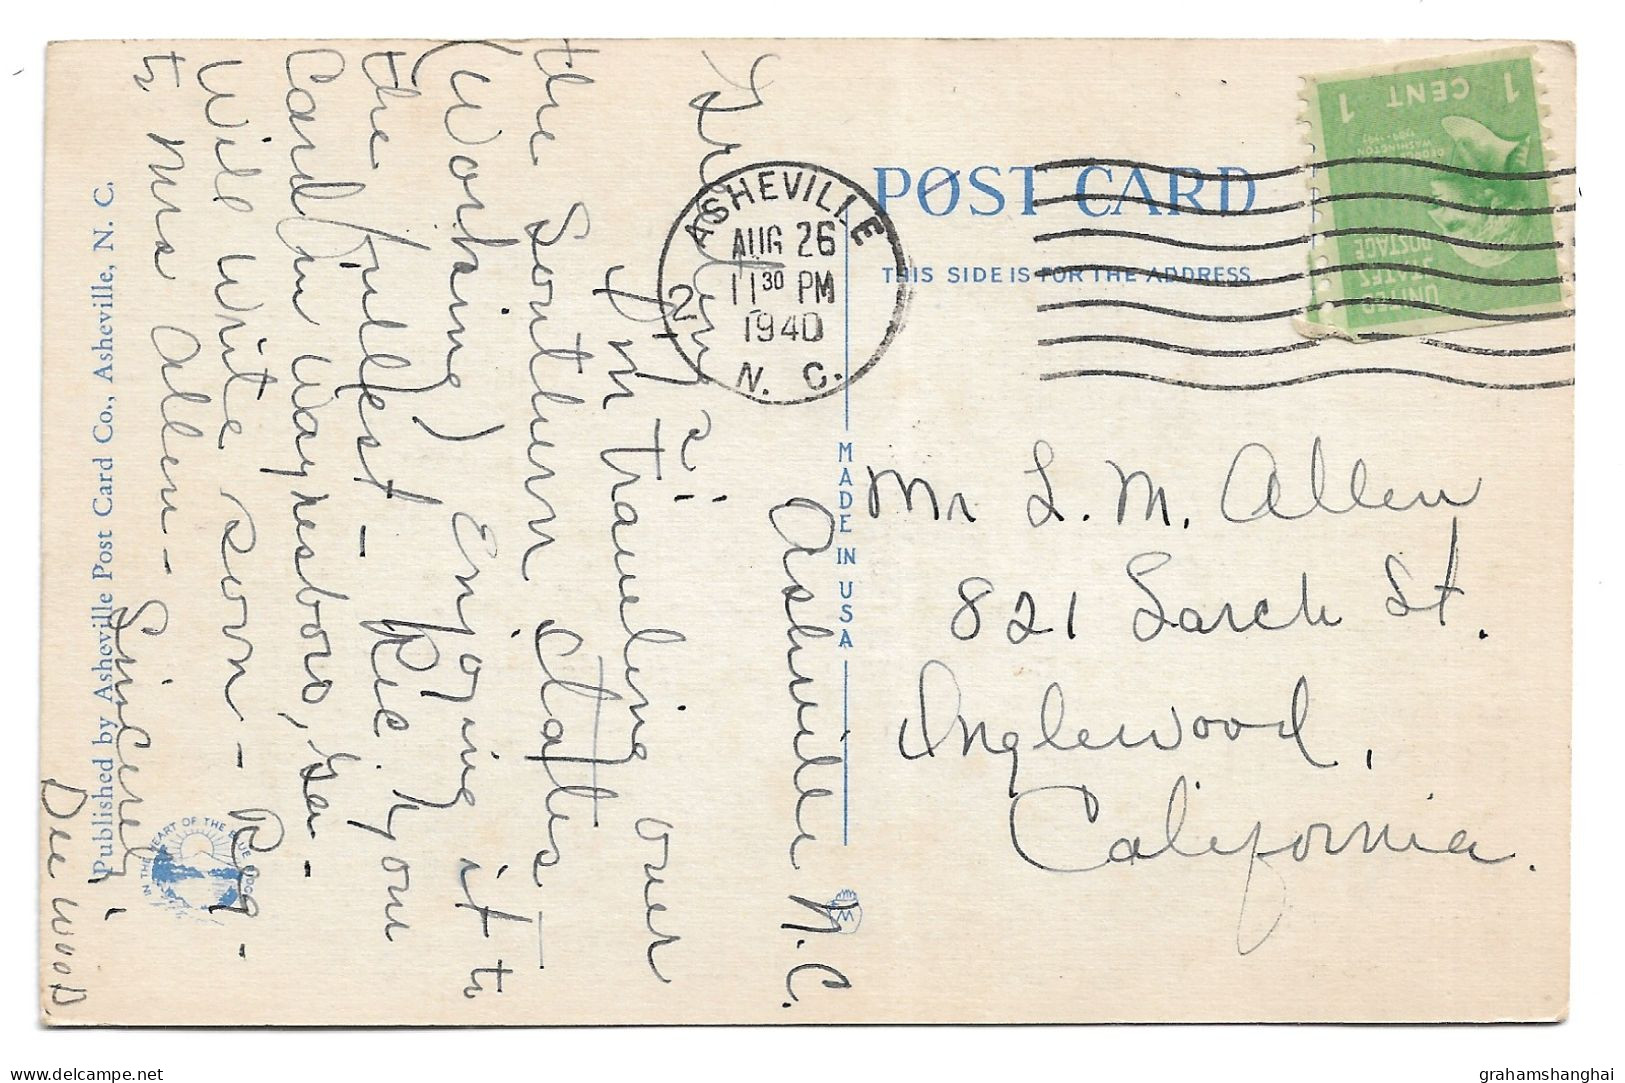 POST CARD
THIS SIDE IS FOR THE ADDRESS
1 CENT 1
GEORGE WASHINGTON
1789-1797
UNITED STATES POSTAGE
ASHEVILLE
AUG 26
11 30 PM
1940
N. C.
2
Mr L. M. Allen
821 Larch St.
Inglewood,
California.
Asheville N.C.
Greetings:
I'm traveling over
the Southern States
(Working) Enjoying it to
the fullest - Rec. your
Card in Waynesboro, Ga -
Will write soon - Reg -
to Mrs Allen - Sincerely,
Dee Wood
MADE IN USA
Published by Asheville Post Card Co., Asheville, N. C.
IN THE HEART OF THE BLUE RIDGE
grahamshanghai